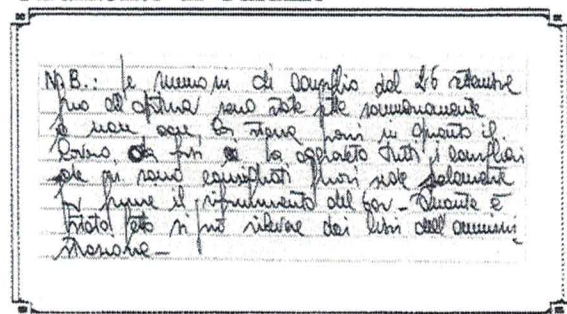 N.B.: le riunioni di consiglio dal 26 settembre
fino all'ultima sono state fatte sommariamente
e non con la stessa in quanto il
lavoro da fare ha aggravato tutti i consiglieri
che si sono consigliati fuori sede solamente
per fare il rifornimento del bar - Quanto è
stato fatto si può rilevare dai libri dell'ammini
strazione -